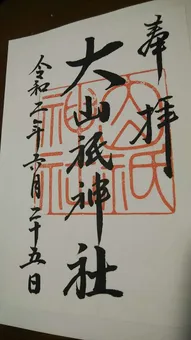 奉拝
大山祇神社
令和二年六月二十五日